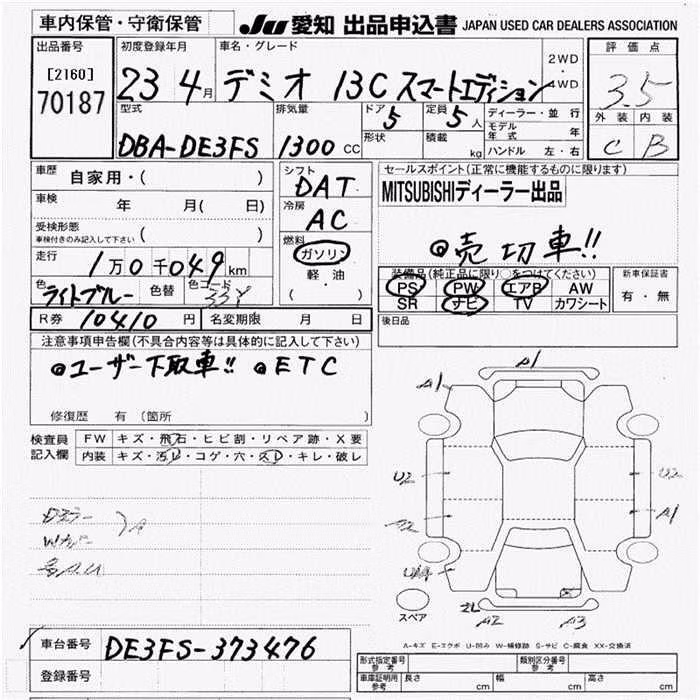 車内保管・守衛保管
JU 愛知 出品申込書 JAPAN USED CAR DEALERS ASSOCIATION
出品番号
[2160]
70187
初度登録年月
23 4月
車名・グレード
デミオ 13C スマートエディション
2WD
・
4WD
評価点
3.5
外装 内装
C B
型式
DBA-DE3FS
排気量
1300 CC
ドア
5
形状
定員
5人
積載
kg
ディーラー・並行
モデル年式 年
ハンドル 左・右
車歴
自家用・( )
車検
年 月( 日)
受検形態
車検付きのみ記入して下さい ( )
走行
1万0千049km
色
ライトブルー
色替
色コード
33Y
シフト
DAT
冷房
AC
燃料
ガソリン
軽・油
( )
セールスポイント(正常に機能するものに限ります)
MITSUBISHIディーラー出品
◎売切車!!
装備品(純正品に限り○をつけてください)
PS PW エアB AW
SR ナビ TV カワシート
新車保証書
有・無
R券 10410 円
名変期限 月 日
後日品
注意事項申告欄(不具合内容等は具体的に記入して下さい)
◎ユーザー下取車!! ◎ETC
修復歴 有(箇所 )
検査員
記入欄
FW キズ・飛石・ヒビ割・リペア跡・X要
内装 キズ・汚レ・コゲ・穴・スレ・キレ・破レ
A1
A1
U2
U2
A2
A1
A2
A3
スペア
A-キズ E-エクボ U-凹み W-補修跡 S-サビ C-腐食 XX-交換済
車台番号 DE3FS-373476
登録番号
形式指定番号
参考
類別区分番号
参考
車庫証明用
参考
長さ cm 幅 cm 高さ cm